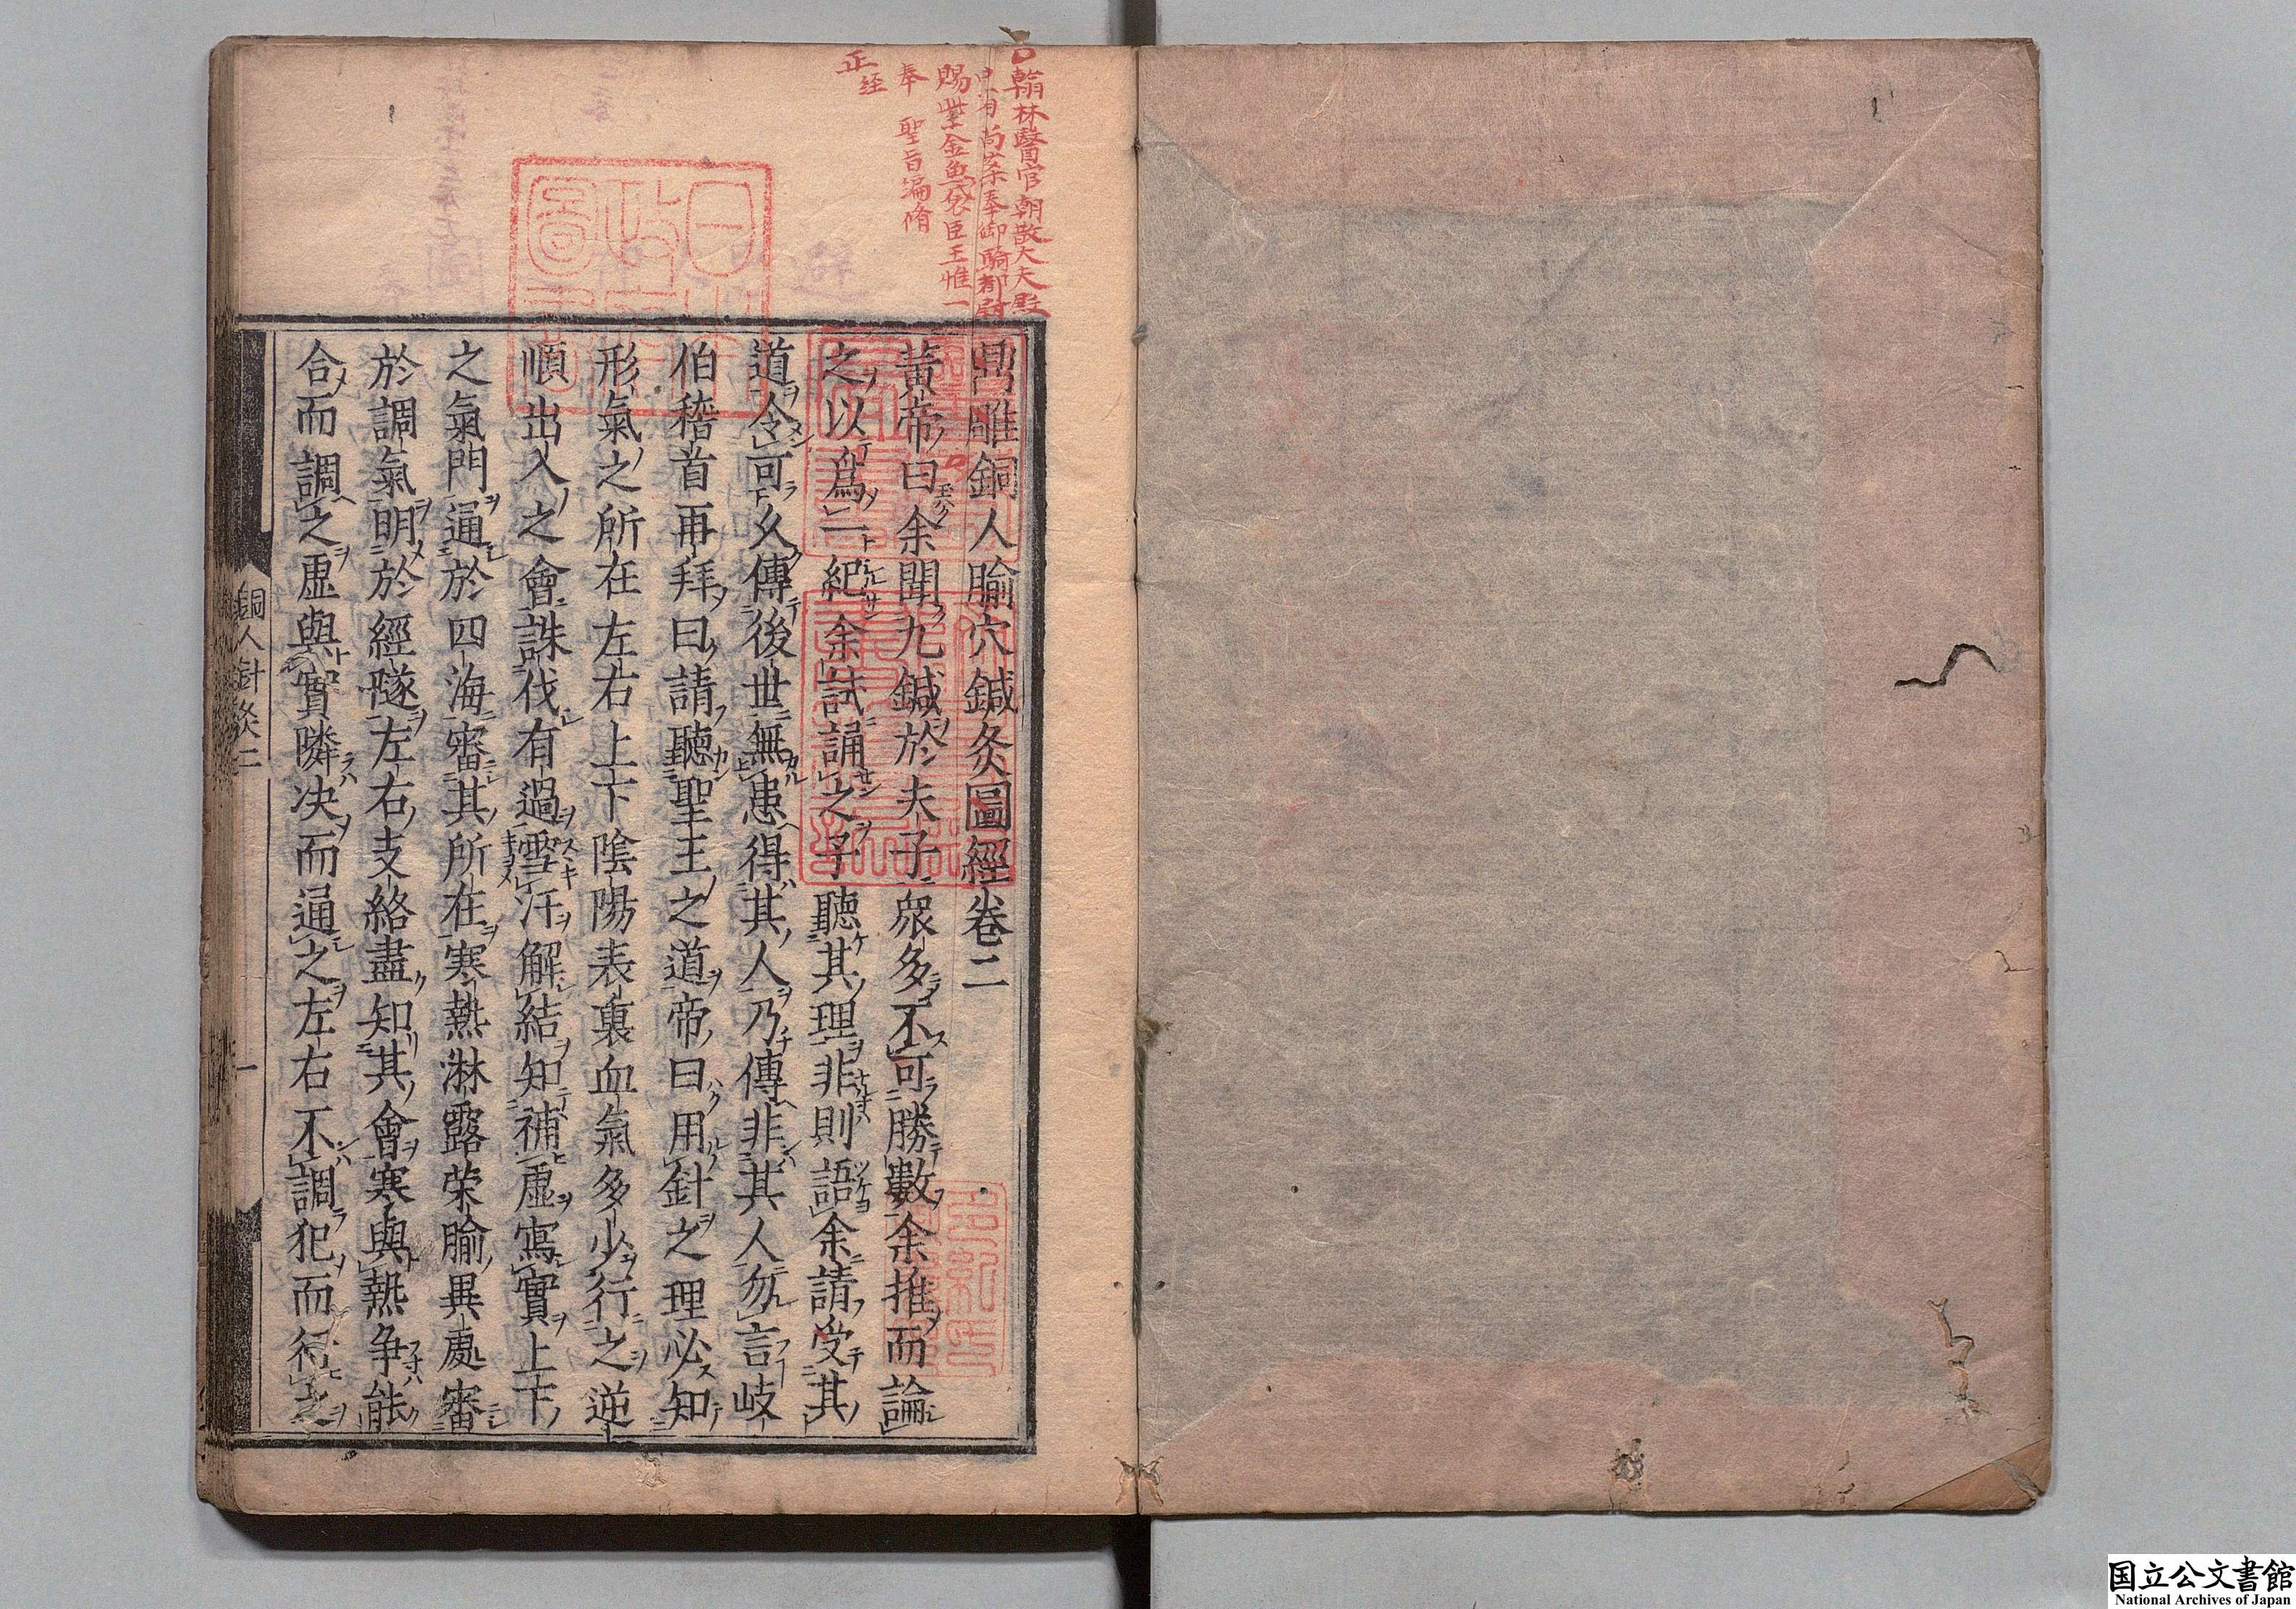 翰林醫官朝散大夫殿
中省尚藥奉御騎都尉
賜紫金魚袋臣王惟一
奉　聖旨編脩
正経
鼎雕銅人腧穴鍼灸圖經卷二
黃帝曰余聞九鍼於夫子衆多不可勝數余推而論
之以爲一紀余試誦之子聽其理非則語余請受其
道令可久傳後世無患得其人乃傳非其人勿言岐
伯稽首再拜曰請聽聖王之道帝曰用針之理必知
形氣之所在左右上下陰陽表裏血氣多少行之逆
順出入之會誅伐有過雪汙解結知補虛寫實上下
之氣門通於四海審其所在寒熱淋露荣腧異處審
於調氣明於經隧左右支絡盡知其會寒與熱争能
合而調之虛與實隣决而通之左右不調犯而行之
銅人針灸二
一
国立公文書館
National Archives of Japan